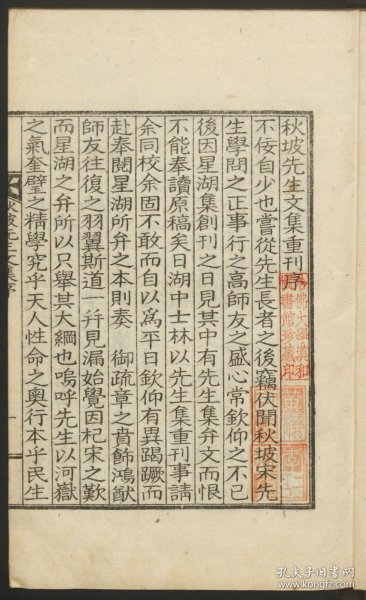 秋坡先生文集重刊序
不佞自少也嘗從先生長者之後竊伏聞秋坡宋先
生學問之正事行之高師友之盛心常欽仰之不已
後因星湖集創刊之日見其中有先生集弁文而恨
不能奉讀原稿矣日湖中士林以先生集重刊事請
余同校余固不敢而自以爲平日欽仰有異蹶而
赴奉閱星湖所弁之本則奏 御疏章之賁飾鴻猷
師友往復之羽翼斯道一行見漏始覺因杞宋之歎
而星湖之弁所以只舉其大綱也嗚呼先生以河嶽
之氣奎璧之精學究乎天人性命之奥行本乎民生
秋坡先生文集序
一
孔夫子旧书网